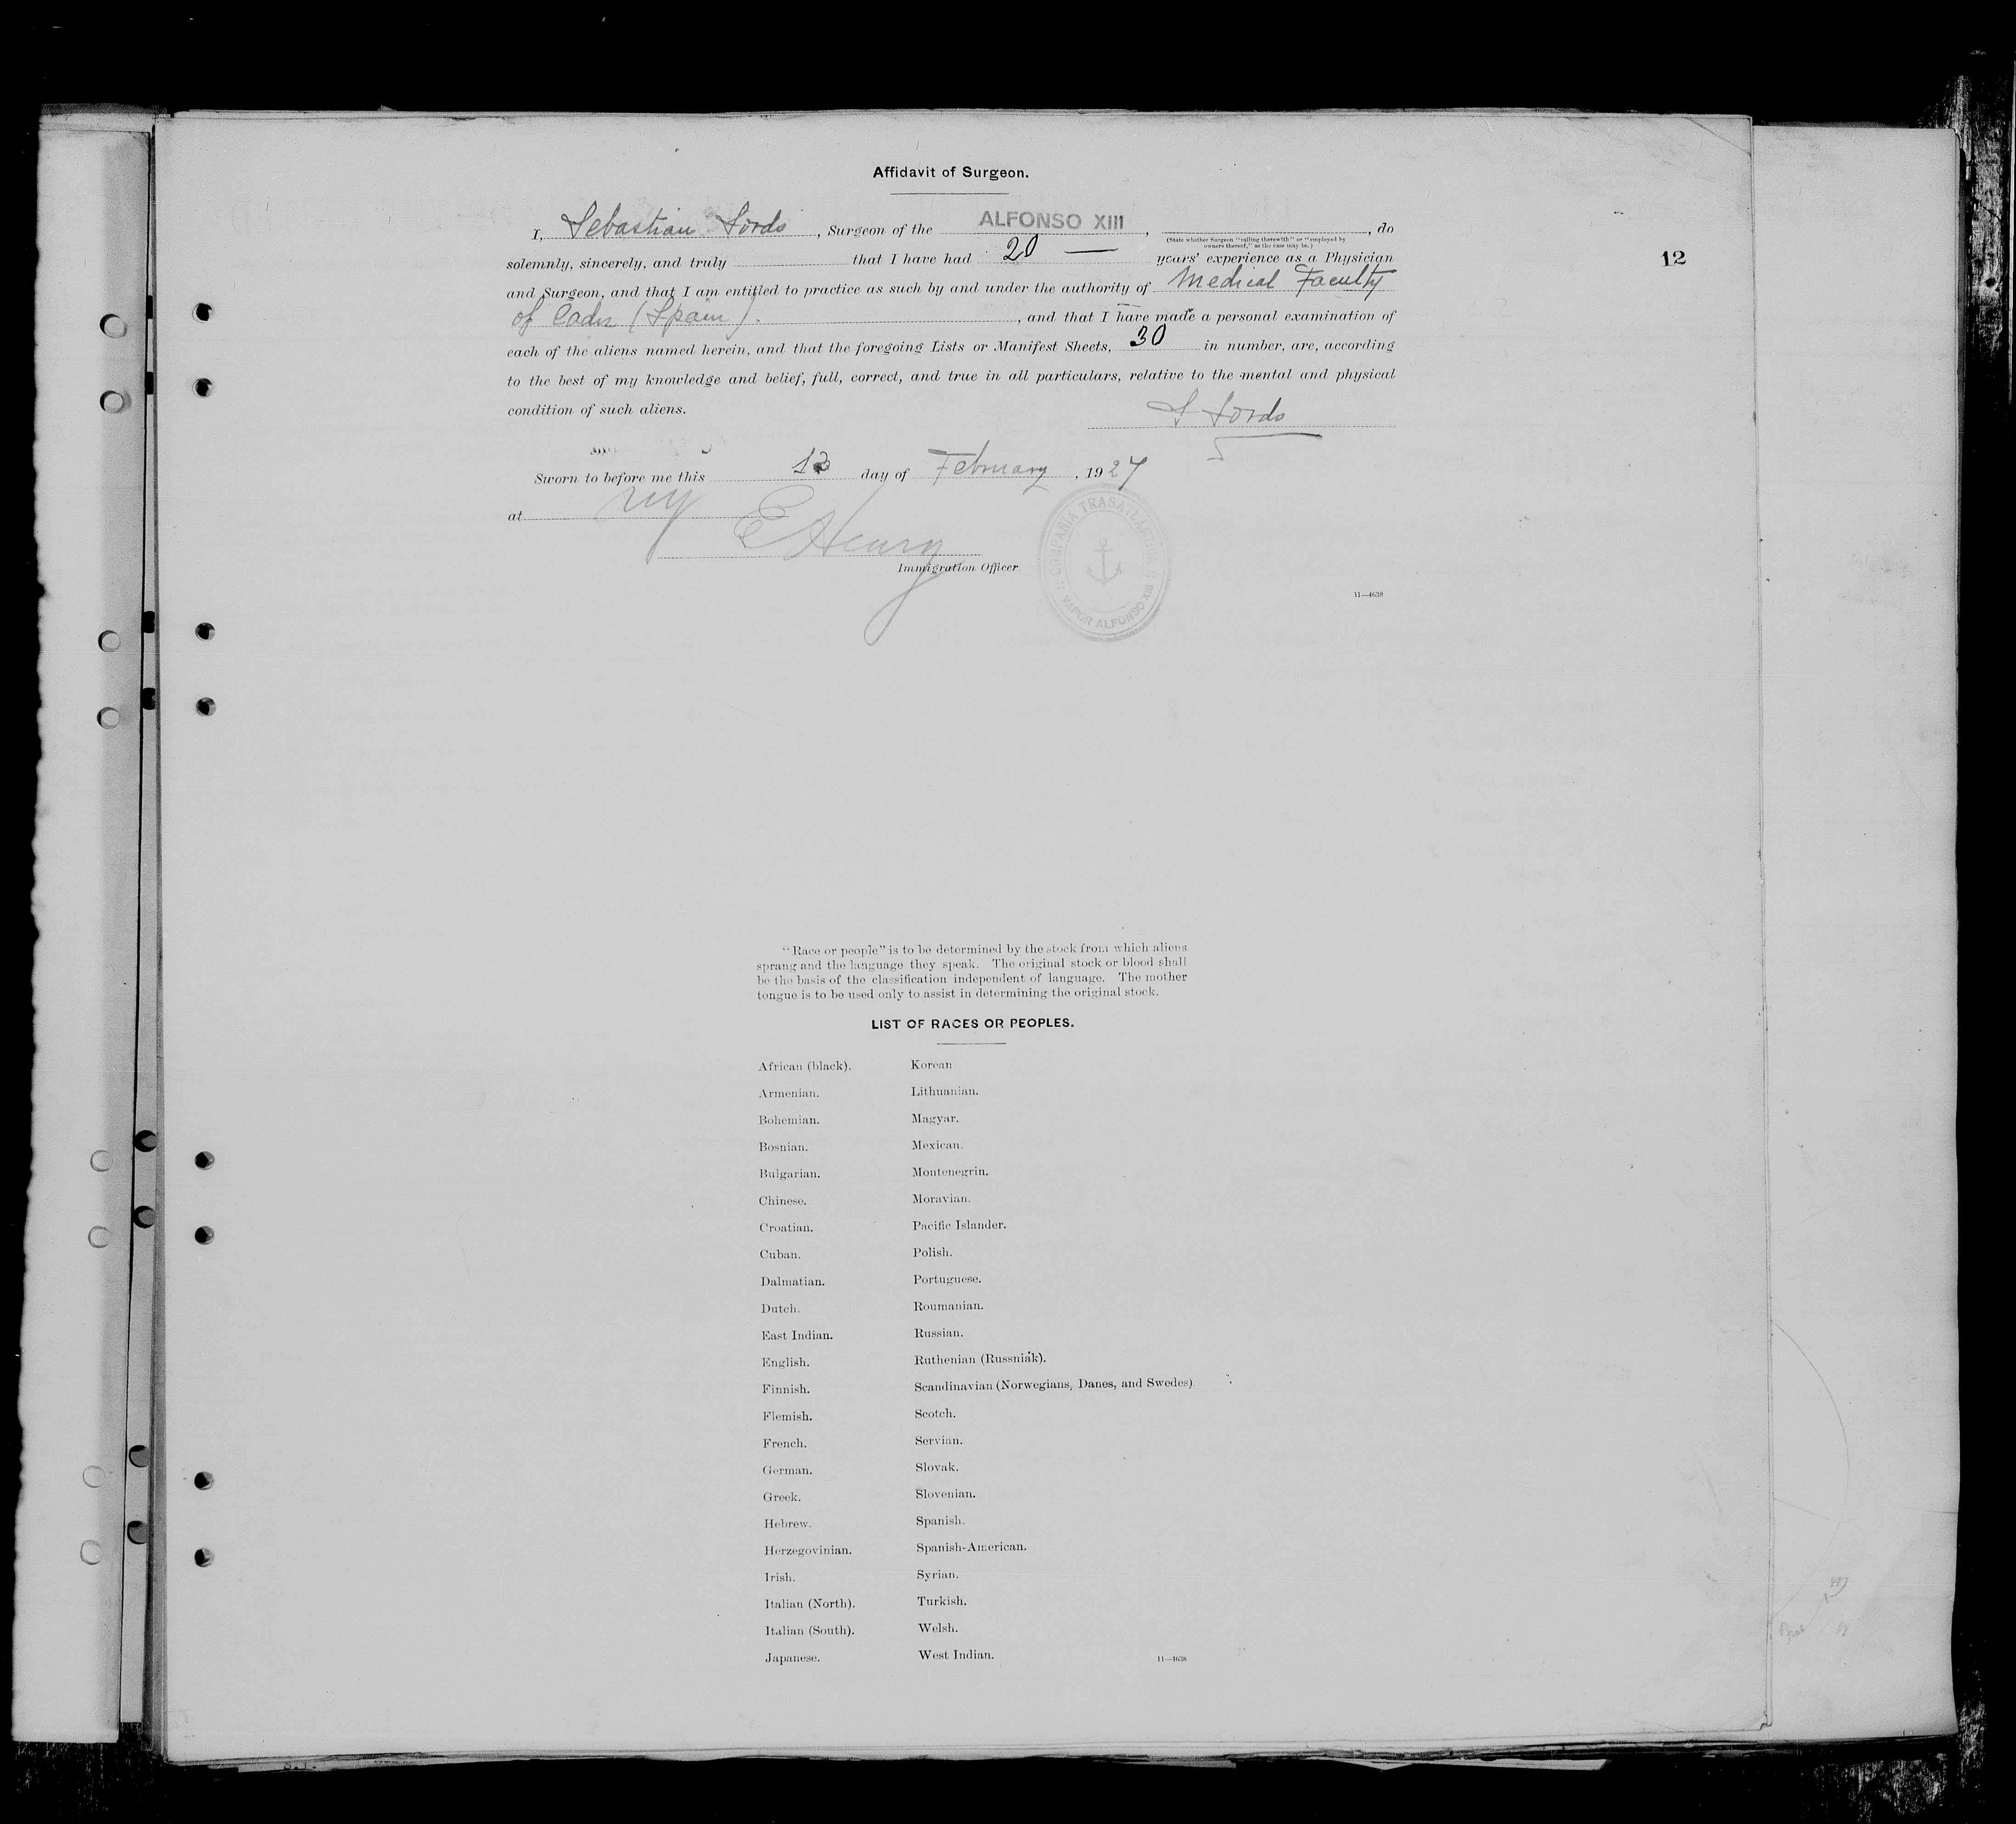 Affidavit of Surgeon.
I, Sebastian Sordo, Surgeon of the ALFONSO XIII, , do
(State whether Surgeon "sailing therewith" or "employed by
owners thereof," as the case may be.)
solemnly, sincerely, and truly that I have had 20 — years' experience as a Physician
and Surgeon, and that I am entitled to practice as such by and under the authority of Medical Faculty
of Cadiz (Spain). , and that I have made a personal examination of
each of the aliens named herein, and that the foregoing Lists or Manifest Sheets, 30 in number, are, according
to the best of my knowledge and belief, full, correct, and true in all particulars, relative to the mental and physical
condition of such aliens.
S Sordo
Sworn to before me this day of February, 1927
at NY
E Henry
Immigration Officer
COMPAÑIA TRASATLANTICA
VAPOR ALFONSO XIII
11—4638
12
"Race or people" is to be determined by the stock from which aliens
sprang and the language they speak. The original stock or blood shall
be the basis of the classification independent of language. The mother
tongue is to be used only to assist in determining the original stock.
LIST OF RACES OR PEOPLES.
African (black).
Armenian.
Bohemian.
Bosnian.
Bulgarian.
Chinese.
Croatian.
Cuban.
Dalmatian.
Dutch.
East Indian.
English.
Finnish.
Flemish.
French.
German.
Greek.
Hebrew.
Herzegovinian.
Irish.
Italian (North).
Italian (South).
Japanese.
Korean
Lithuanian.
Magyar.
Mexican.
Montenegrin.
Moravian.
Pacific Islander.
Polish.
Portuguese.
Roumanian.
Russian.
Ruthenian (Russniak).
Scandinavian (Norwegians, Danes, and Swedes).
Scotch.
Servian.
Slovak.
Slovenian.
Spanish.
Spanish-American.
Syrian.
Turkish.
Welsh.
West Indian.
11—4638